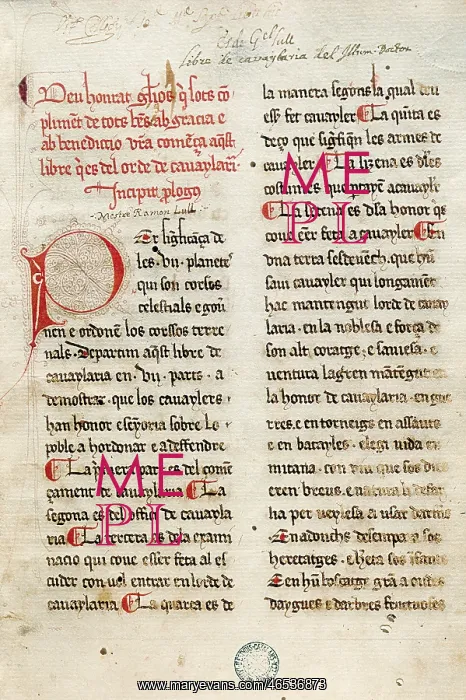 Es de Gel Lull
Libre de cavaylaria del Illum. Doctor
Deu honrat glıos q̃ sots cõ
pliment de tots bẽs ab gracia e
ab benedictio vr̃a comẽça aq̃st
libre q̃ es del orde de cavaylaria
Incipit plogus
Mestre Ramon Lull
Per significança de
les .vii. planetes
qui son corsos
celestials e gou
nen e ordonẽ los corssos terre
nals. Departim aq̃st libre de
cavaylaria en .vii. parts. a
demostrar. que los cavaylers
han honor e senyoria sobre lo
poble a hordonar e a deffendre
La primera part es del comẽ
çament de cavaylaria La
segona es del offici de cavayla
ria La tercera es dela exami
nacio qui cove esser feta al es
cuder con vol entrar en lorde de
cavaylaria. La quarta es de
la manera segons la qual deu
esser fet cavayler La quinta es
deço que significen les armes de
cavayler La sizena es dels
costums que ptayẽ a cavayler
La setena es dla honor q̃s
cove eser feta a cavayler En
vna terra sesdevech. que hun
savi cavayler qui longament
hac mantengut lorde de cavay
laria. en la noblesa e força de
son alt coratge, e saviesa. e
ventura lagren mantengut en
la honor de cavaylaria. en gue
rres. e en torneigs en assauts
e en batayles. elegi vida er
mitana. con viu que los dies
eren breus. e natura li defay
ha per veylesa a usar darmes
heretatges. e
daygues e darbres fructuoses
ME
PL
ME
PL
www.maryevans.com/46536873